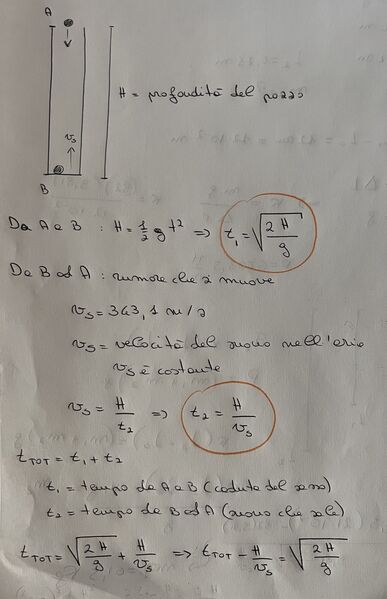 A
H = profondità del pozzo
vs
B
Da A a B : H = 1/2 g t² => t₁ = √(2H/g)
Da B ad A : rumore che si muove
vs = 343,1 m/s
vs = velocità del suono nell'aria
vs è costante
vs = H/t₂ => t₂ = H/vs
tTOT = t₁ + t₂
t₁ = tempo da A a B (caduta del sasso)
t₂ = tempo da B ad A (suono che sale)
tTOT = √(2H/g) + H/vs => tTOT - H/vs = √(2H/g)